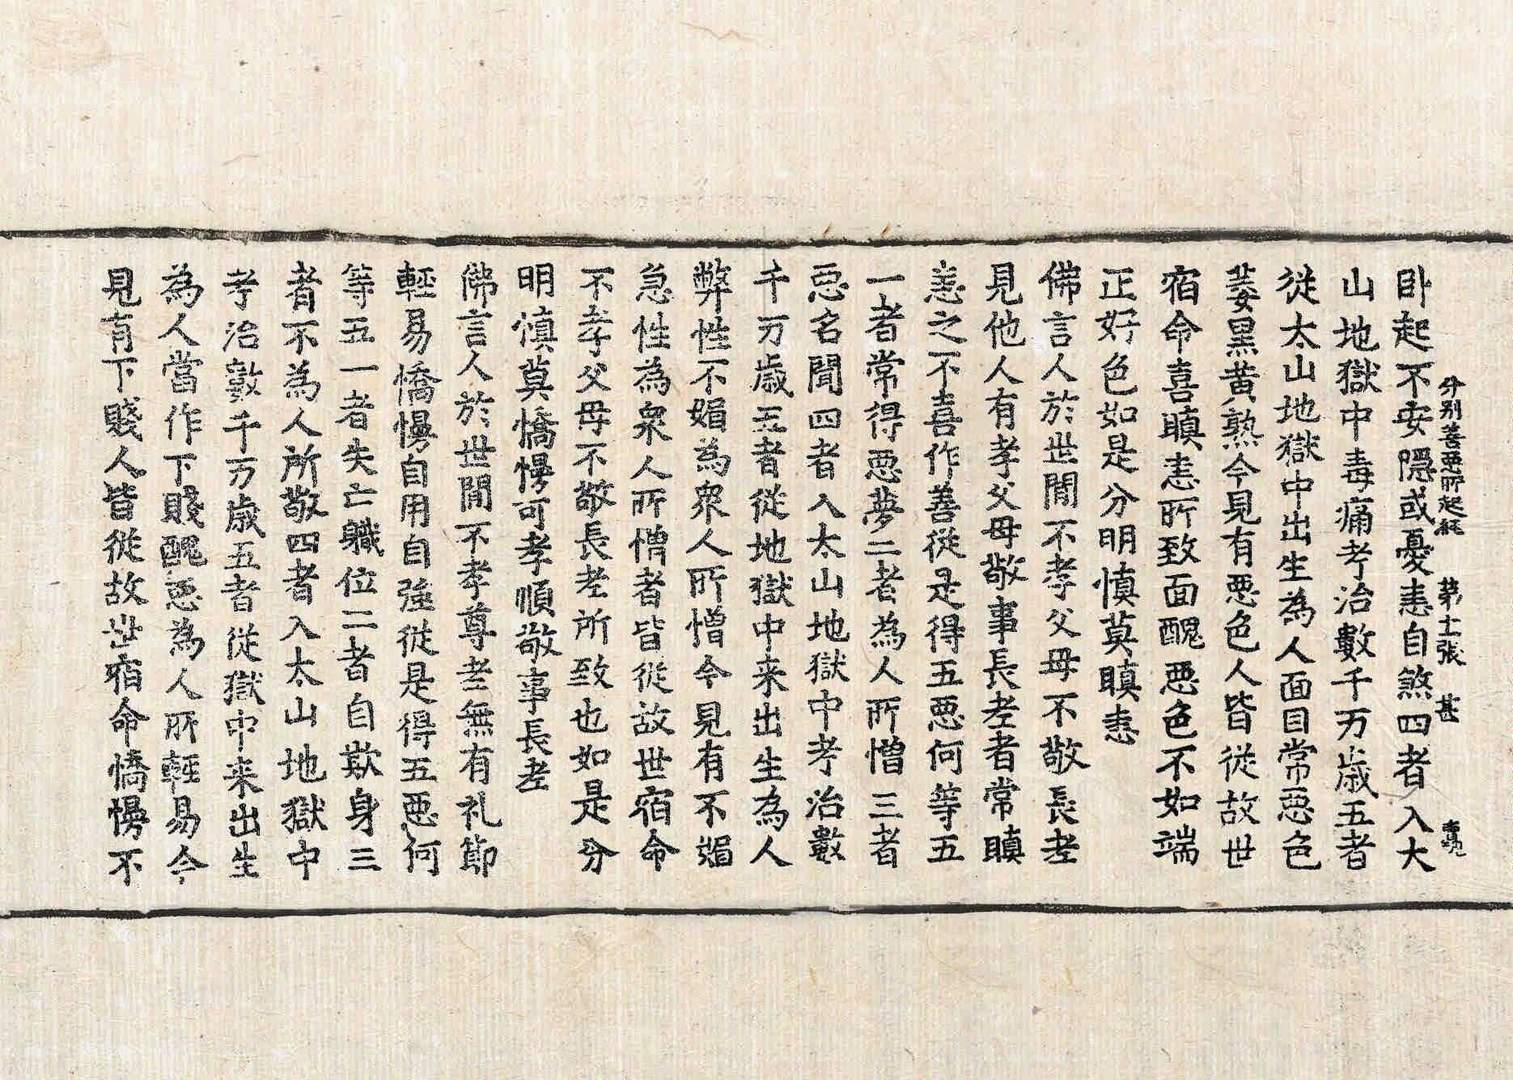 分别善惡所起経 第十一張 甚
卧起不安隱或憂恚自煞四者入大
山地獄中毒痛考治數千万歲五者
從太山地獄中出生為人面目常惡色
萎黑黄熟今見有惡色人皆從故世
宿命喜瞋恚所致面醜惡色不如端
正好色如是分明慎莫瞋恚
佛言人於世間不孝父母不敬長老
見他人有孝父母敬事長老者常瞋
恚之不喜作善從是得五惡何等五
一者常得惡夢二者為人所憎三者
惡名聞四者入太山地獄中考治數
千万歲五者從地獄中来出生為人
弊性不媚為衆人所憎今見有不媚
急性為衆人所憎者皆從故世宿命
不孝父母不敬長老所致也如是分
明慎莫憍慢可孝順敬事長老
佛言人於世間不孝尊老無有礼節
輕易憍慢自用自強從是得五惡何
等五一者失亡軄位二者自欺身三
者不為人所敬四者入太山地獄中
考治數千万歲五者從獄中来出生
為人當作下賤醜惡為人所輕易今
見有下賤人皆從故世宿命憍慢不